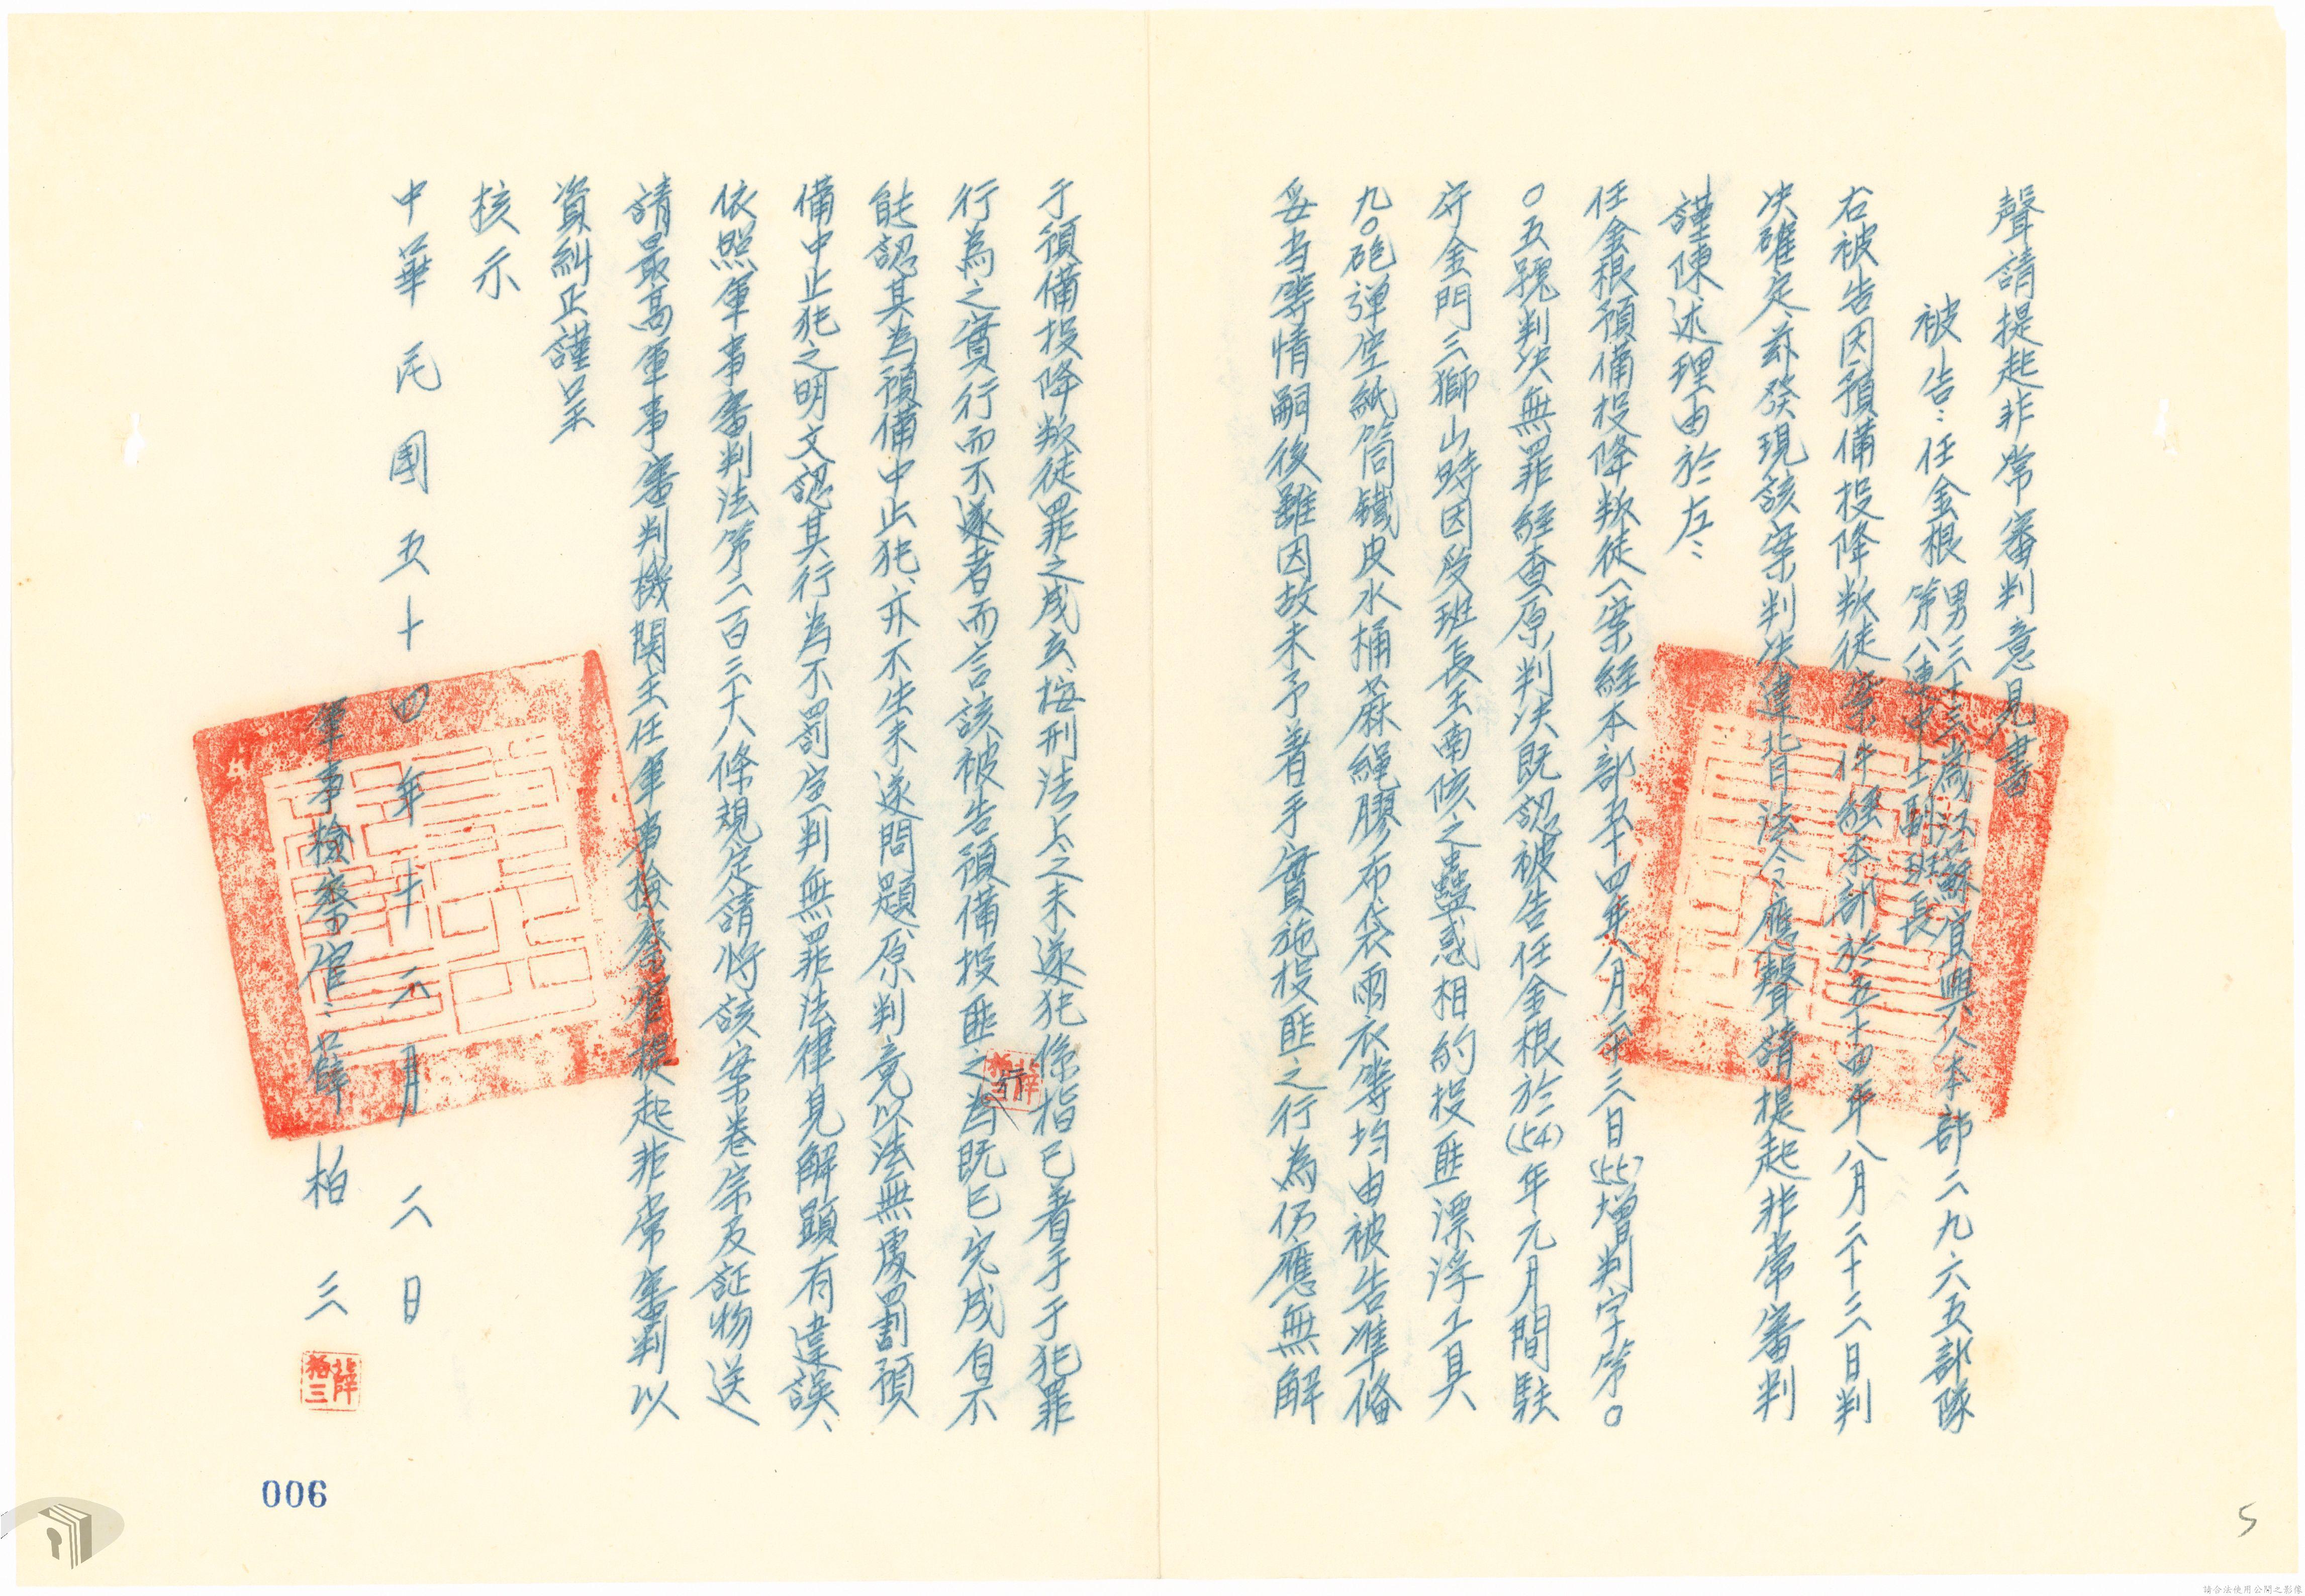 聲請提起非常審判意見書
被告：任金根 男三十三歲江蘇宜興人本部二九六五部隊
第八連中士副班長
右被告因預備投降叛徒案件經本部於五十四年八月二十三日判
決確定、茲發現該案判決違背法令應聲請提起非常審判
謹陳述理由於左：
任金根預備投降叛徒一案經本部五十四年八月二十三日(55)增判字第○
○五號判決無罪經查原判決既認被告任金根於(54)年元月間駐
守金門三獅山時因受班長王南陔之蠱惑相約投匪漂浮工具
九○砲彈空紙筒鐵皮水桶蔴繩膠布袋雨衣等均由被告準備
妥当等情嗣後雖因故未予着手實施投匪之行為仍應無解
于預備投降叛徒罪之成立、按刑法上之未遂犯係指已着手于犯罪
行為之實行而不遂者而言該被告預備投匪之行為既已完成自不
能認其為預備中止犯、亦不生未遂問題、原判竟以法無處罰預
備中止犯之明文認其行為不罰宣判無罪法律見解顯有違誤、
依照軍事審判法第二百三十八條規定請將該案卷宗及証物送
請最高軍事審判機関主任軍事檢察官提起非常審判以
資糾正謹呈
核示
中華民國五十四年十二月二日
軍事檢察官：薛柏三
薛柏三
006
5
請合法使用公開之影像